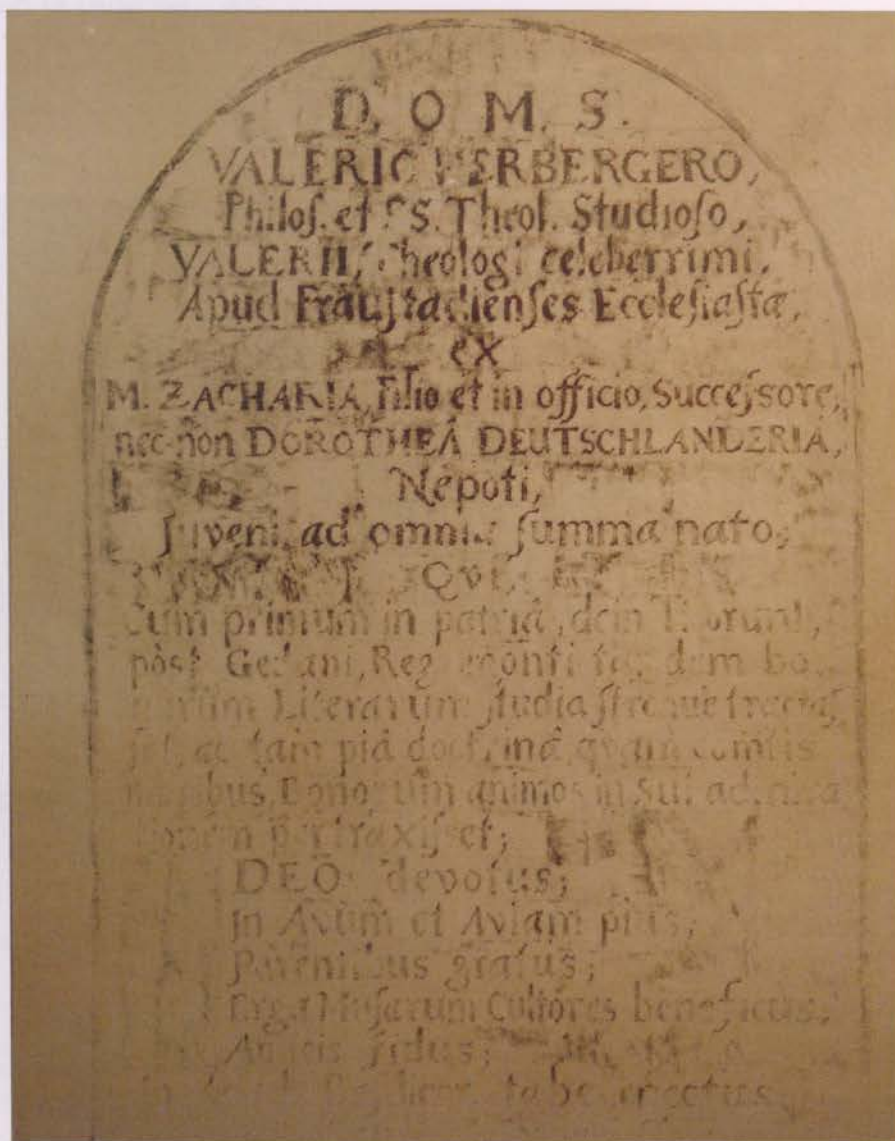 D. O M. S.
VALERIO HERBERGERO,
Philos. et SS. Theol. Studioso,
VALERII, Theologi celeberrimi,
Apud Fraustadienses Ecclesiastæ,
ex
M. ZACHARIA, Filio et in officio, Successore,
nec non DOROTHEA DEUTSCHLANDERIA,
Nepoti,
Juveni, ad omnia summa nato,
Qvi,
Cum primum in patriâ, dein Thorunii,
pòst Gedani, Regiomonti tandem bo-
narum Literarum studia strenue tractas-
set, ac tam piâ doctrinâ, quam comtis
moribus, Bonorum animos in sui admira-
tionem pertraxisset;
DEO devotus;
in Avum et Aviam pius;
Parentibus gratus;
Erga Musarum Cultores beneficus,
Amicis fidus;